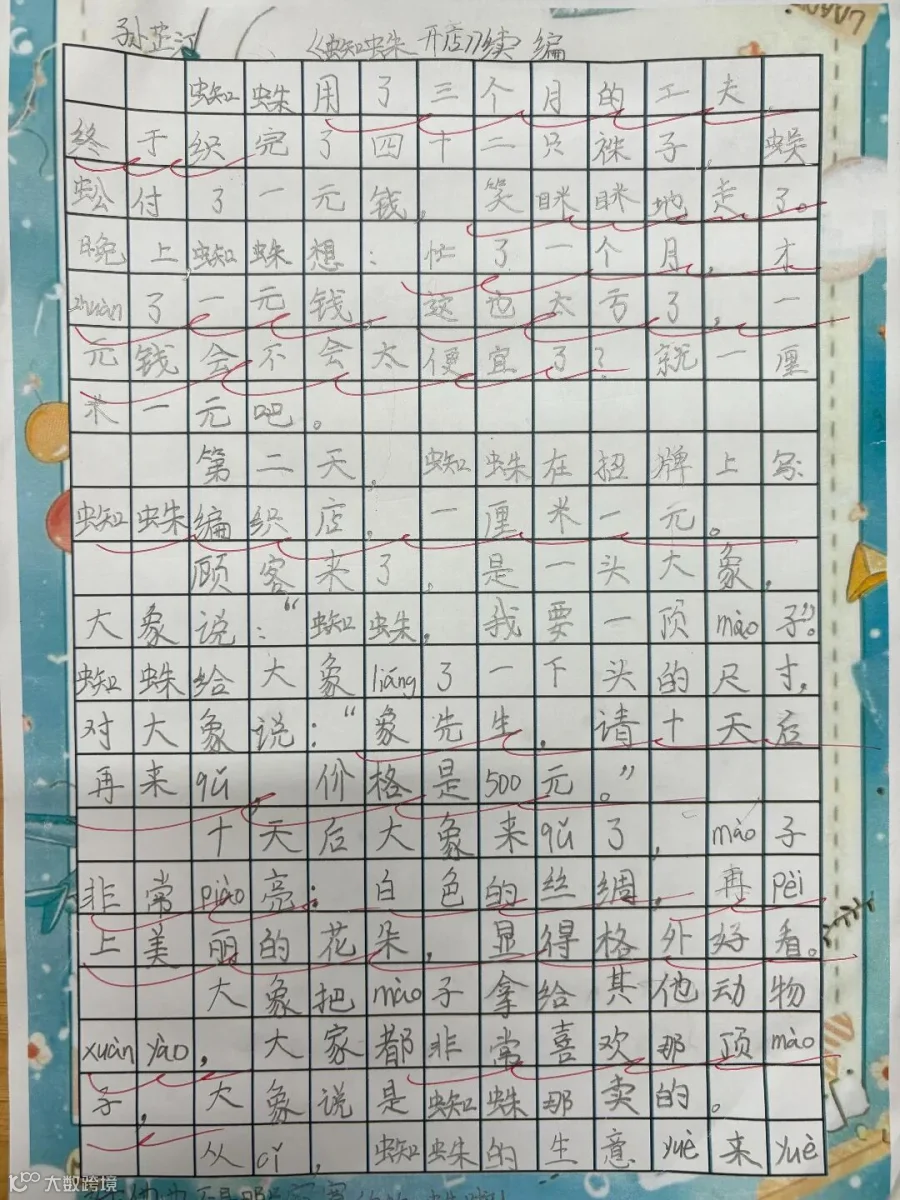 孙芷江
《蜘蛛开店》续编
蜘蛛用了三个月的工夫,
终于织完了四十二只袜子,蜈
蚣付了一元钱,笑眯眯地走了。
晚上蜘蛛想:忙了一个月,才
zhuàn了一元钱,这也太亏了,一
元钱会不会太便宜了?就一厘
米一元吧。
第二天,蜘蛛在招牌上写:
蜘蛛编织店,一厘米一元。
顾客来了,是一头大象,
大象说:“蜘蛛,我要一顶mào子”。
蜘蛛给大象liáng了一下头的尺寸,
对大象说:“象先生,请十天后
再来qǔ,价格是500元。”
十天后大象来qǔ了,mào子
非常piào亮:白色的丝绸,再pèi
上美丽的花朵,显得格外好看。
大象把mào子拿给其他动物
xuàn yào,大家都非常喜欢那顶mào
子,大象说是蜘蛛那卖的。
从cǐ,蜘蛛的生意yuè来yuè
大数跨境